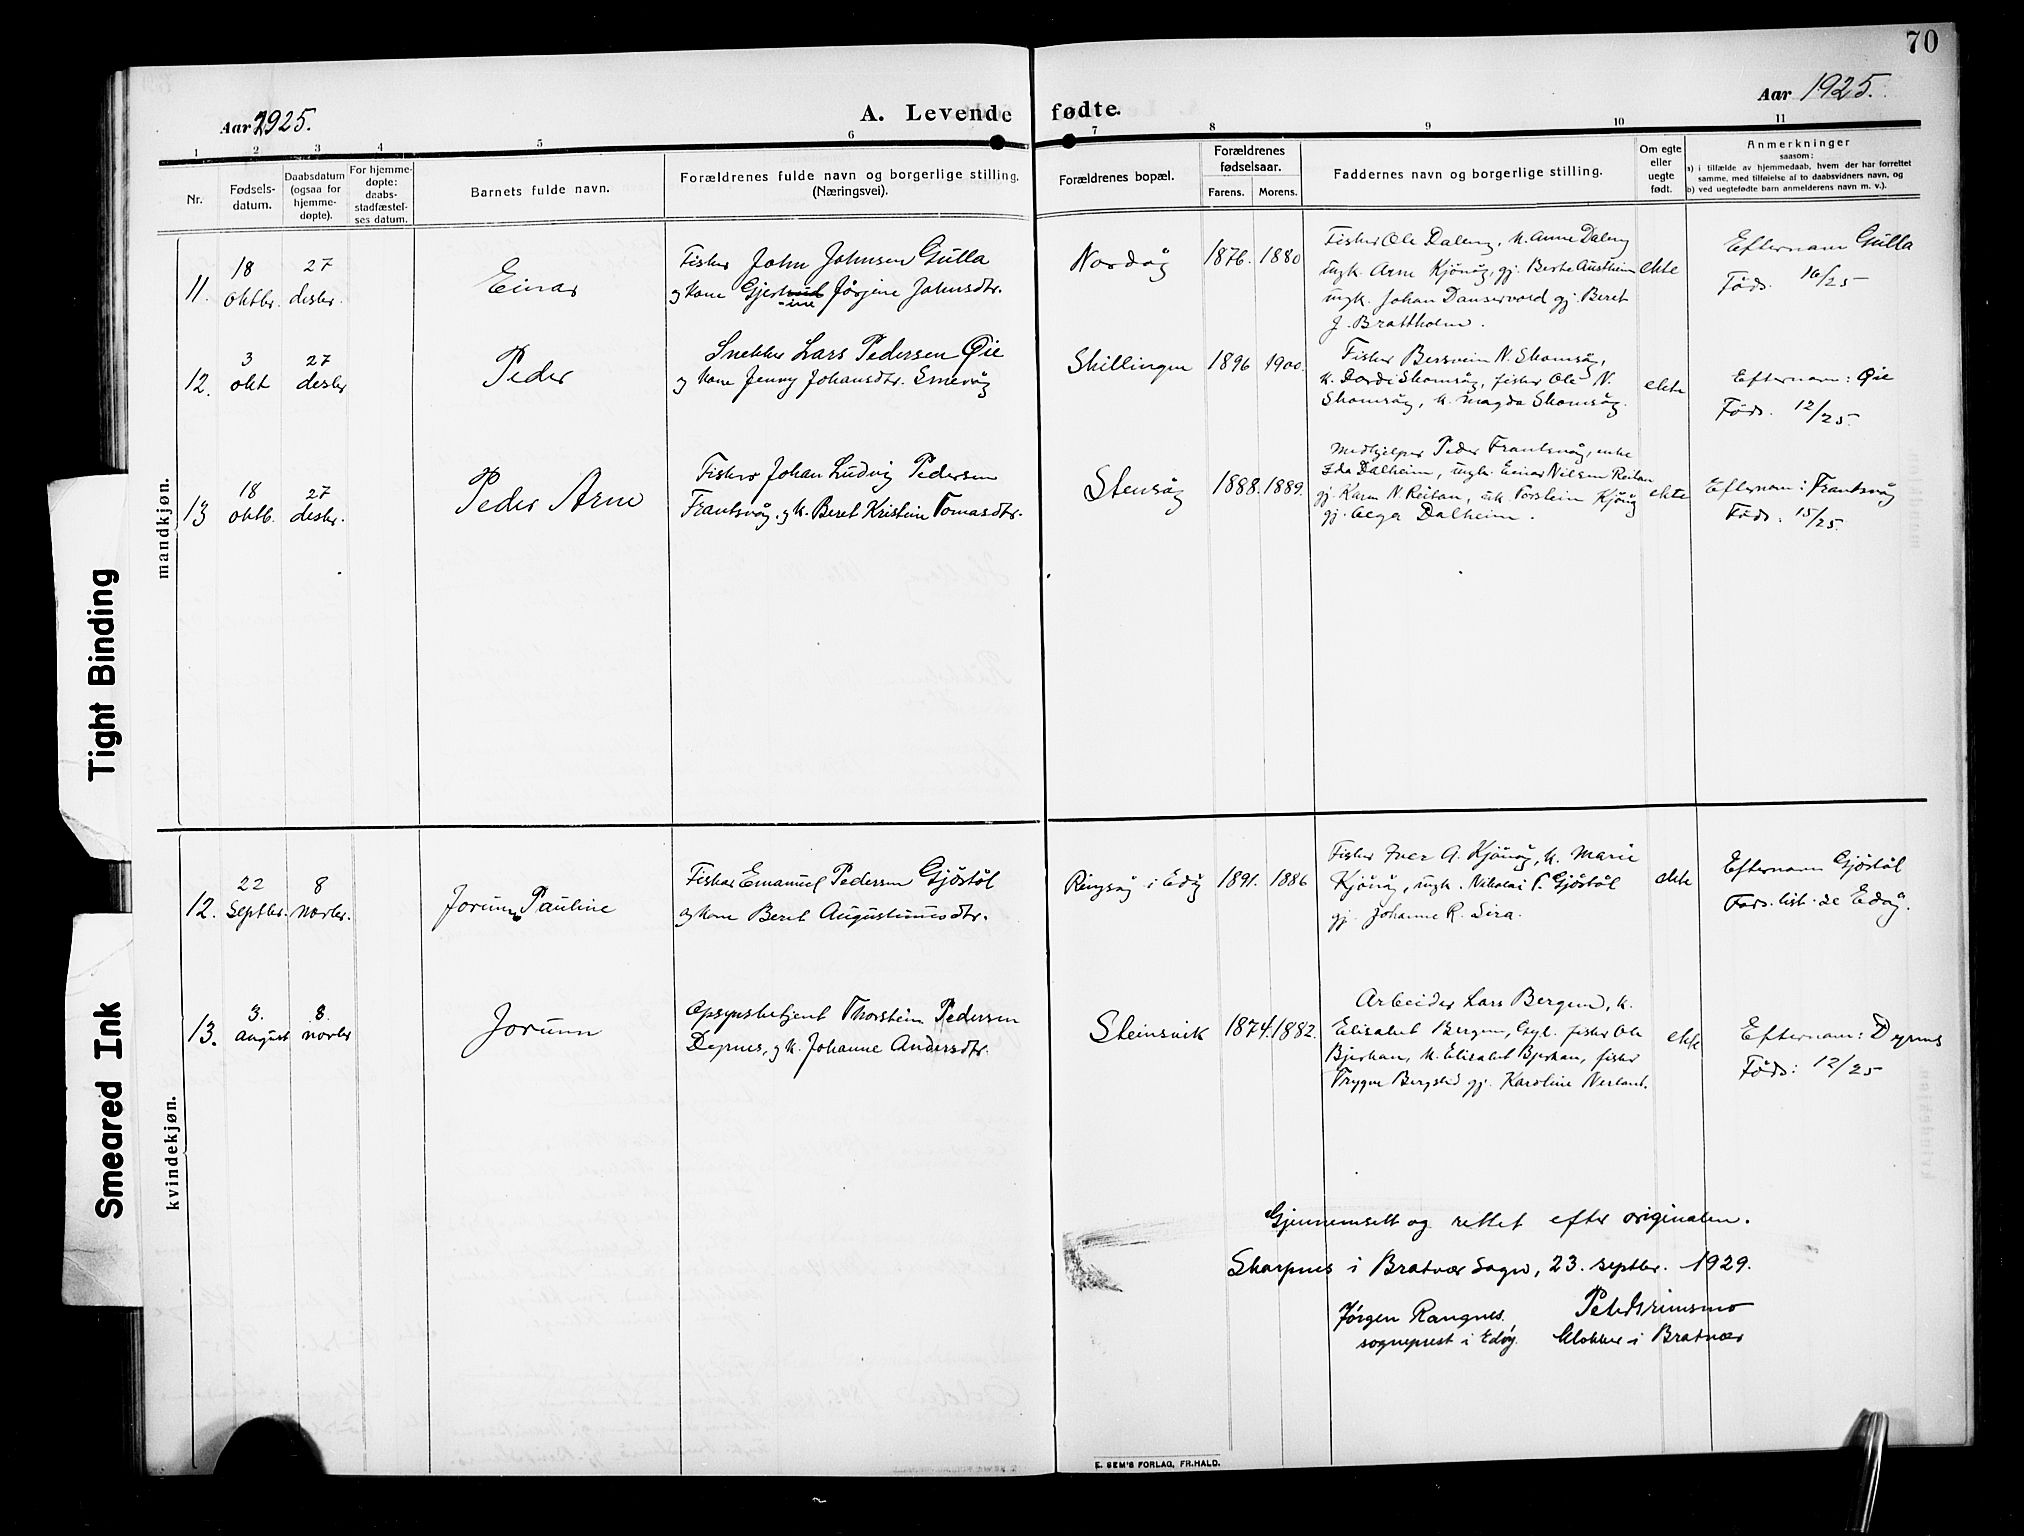 70
Aar 1925.
A. Levende fødte.
Aar 1925.
1 2 3 4 5 6 7 8 9 10 11
Nr.
Fødsels-
datum.
Daabsdatum
(ogsaa for
hjemme-
døpte).
For hjemme-
døpte:
daabs-
stadfæstel-
ses datum.
Barnets fulde navn.
Forældrenes fulde navn og borgerlige stilling.
(Næringsvei).
Forældrenes bopæl.
Forældrenes
fødselsaar.
Farens. Morens.
Faddernes navn og borgerlige stilling.
Om egte
eller
uegte
født.
Anmerkninger
saasom:
a) i tilfælde av hjemmedaab, hvem der har forrettet
samme, med tilføielse af to daabsvidners navn, og
b) ved uegtefødte barn anmelderens navn m. v.).
mandkjøn.
11.
18
oktbr.
27
desbr.
Einar
Fisker John Johnsen Gulla
og kone Gjertrud Jørgine Johnsdtr.
-ine
Nordøy
1876. 1880
Fisker Ole Daleng, k. Anne Daleng
ungk. Arne Kjönöy, gj. Berte Austheim
ungk. Johan Danservold gj. Beret
J. Brattholm.
ekte
Efternavn Gulla
Föds. 16/25
12.
3
okt
27
desbr
Peder
Snekker Lars Pedersen Øie
og kone Jenny Johansdtr. Smevåg
Skillingen
1896 1900.
Fisker Bersvein N. Skomsöy,
k. Dordi Skomsöy, fisker Ole N.
Skomsöy, k. Magda Skomsöy.
ekte
Efternavn: Øie
Föds. 12/25.
13
18
oktb.
27
desbr.
Peder Arne
Fisker Johan Ludvig Pedersen
Frantsvåg, og k. Beret Kristine Tomasdtr.
Stensöy
1888. 1889.
Medhjelper Peder Frantsvåg, enke
Ida Dalheim, ungk. Einar Nilsen Reitan
gj. Karen N. Reitan, uk Torstein Kjönöy
gj. Olga Dalheim.
ekte
Efternavn: Frantsvåg
Föds: 15/25.
kvindekjøn.
12.
22
septbr.
8
novbr.
Jorunn Pauline
Fisker Emanuel Pedersen Gjöstöl
og kone Beret Augustinusdtr.
Ringsöy i Edöy
1891. 1886
Fisker Iver A. Kjönöy, k. Marie
Kjönöy, ungk. Nikolai P. Gjöstöl
gj. Johanne R. Sira.
ekte
Efternavn Gjöstöl
Föds. list. 20 Edöy.
13.
3.
august
8.
novbr
Jorunn
Opsynsbetjent Thorstein Pedersen
Dyrnes, og k. Johanne Andersdtr.
Steinsvik
1874. 1882.
Arbeider Lars Bergem, k.
Elisabet Bergem, Gyl. fisker Ole
Bjerkan, k. Elisabet Bjerkan, fisker
Trygve Bergsted gj. Karoline Nerland.
ekte
Efternavn: Dyrnes
Föds: 12/25
Gjennemsett og rettet efter originalen.
Skarpnes i Bratvær Sogn, 23. septbr. 1929.
Jørgen Rangnes.
sogneprest i Edøy.
Klokker i Bratvær
E. SEM'S FORLAG, FR.HALD.
Tight Binding
Smeared Ink